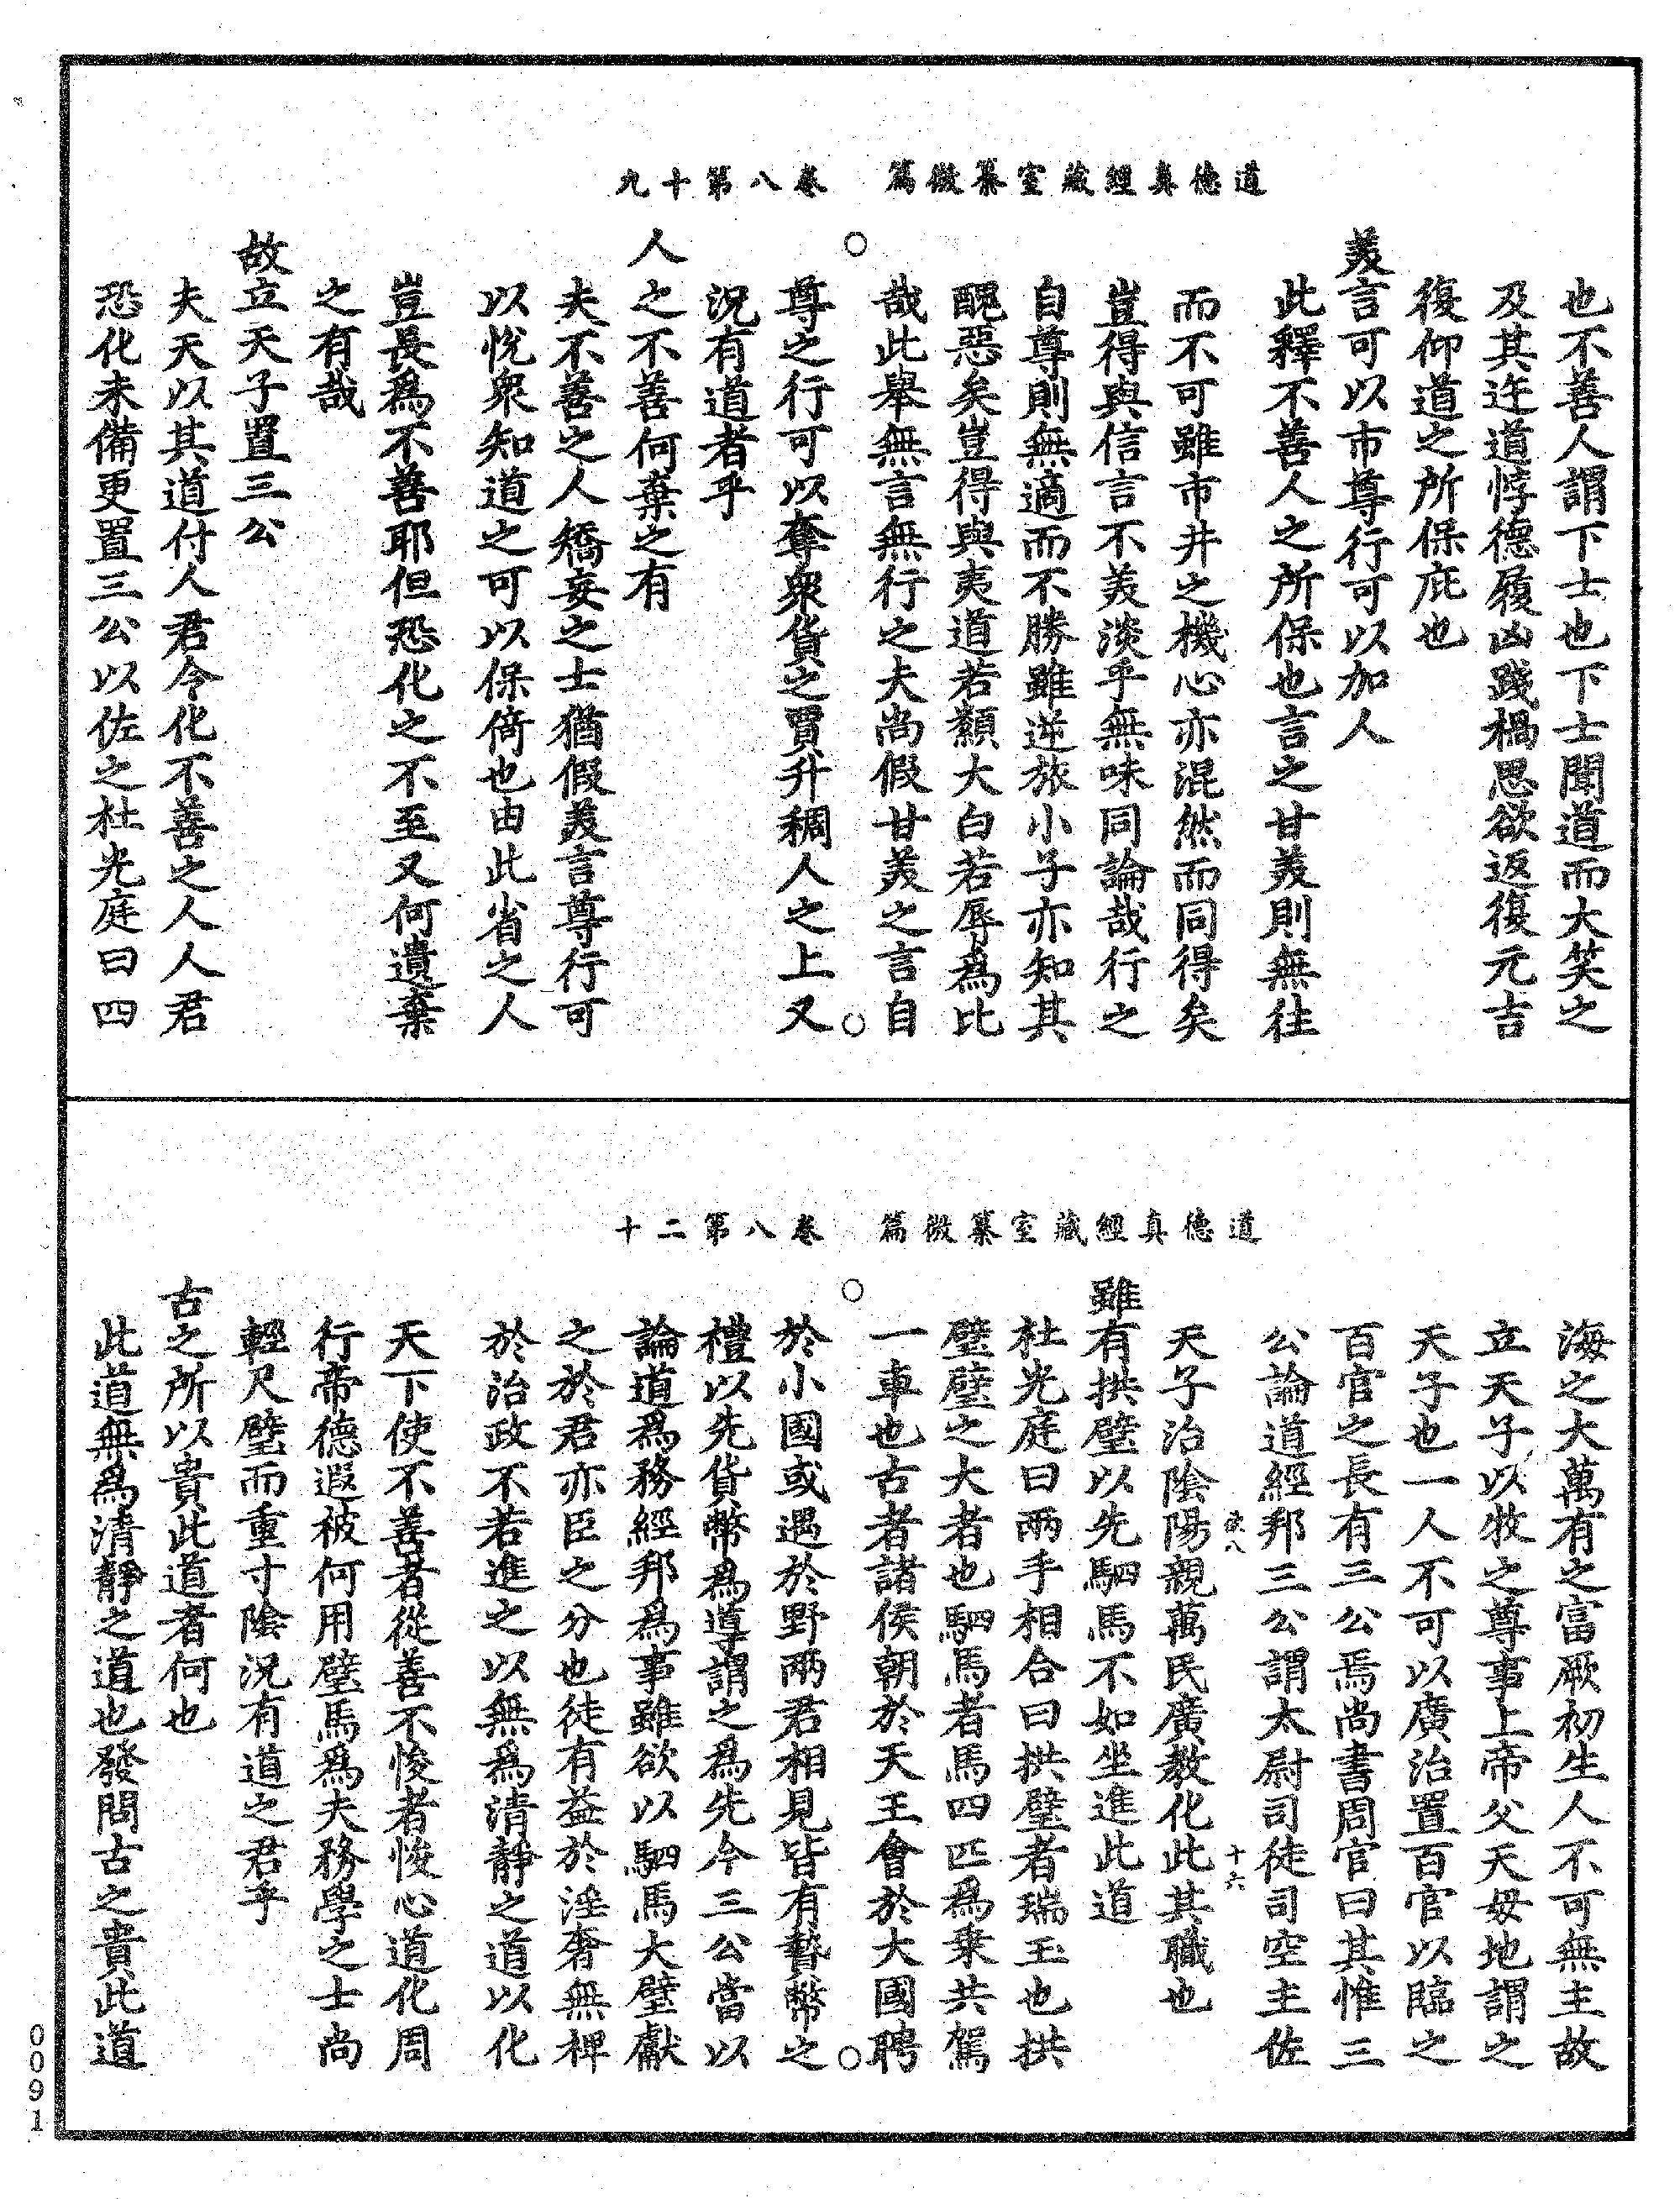 道德真經藏室纂微篇　卷八第十九
也不善人謂下士也下士聞道而大笑之
及其迕道悖德履凶踐禍思欲返復元吉
復仰道之所保庇也
美言可以市尊行可以加人
此釋不善人之所保也言之甘美則無往
而不可雖市井之機心亦混然而同得矣
豈得與信言不美淡乎無味同論哉行之
自尊則無適而不勝雖逆旅小子亦知其
醜惡矣豈得與夷道若纇大白若辱爲比
哉此舉無言無行之夫尚假甘美之言自
尊之行可以奪衆貨之賈升稠人之上又
況有道者乎
人之不善何棄之有
夫不善之人矯妄之士猶假美言尊行可
以悅衆知道之可以保倚也由此省之人
豈長爲不善耶但恐化之不至又何遺棄
之有哉
故立天子置三公
夫天以其道付人君令化不善之人人君
恐化未備更置三公以佐之杜光庭曰四
道德真經藏室纂微篇　卷八第二十
海之大萬有之富厥初生人不可無主故
立天子以牧之尊事上帝父天母地謂之
天子也一人不可以廣治置百官以臨之
百官之長有三公焉尚書周官曰其惟三
公論道經邦三公謂太尉司徒司空主佐
天子治陰陽親萬民廣教化此其職也
雖有拱璧以先駟馬不如坐進此道
杜光庭曰兩手相合曰拱璧者瑞玉也拱
璧璧之大者也駟馬者馬四匹爲乗共駕
一車也古者諸侯朝於天王會於大國聘
於小國或遇於野兩君相見皆有贄幣之
禮以先貨幣爲導謂之爲先今三公當以
論道爲務經邦爲事雖欲以駟馬大璧獻
之於君亦臣之分也徒有益於淫奢無裨
於治政不若進之以無爲清靜之道以化
天下使不善者從善不悛者悛心道化周
行帝德遐被何用璧馬爲夫務學之士尚
輕尺璧而重寸陰況有道之君乎
古之所以貴此道者何也
此道無爲清靜之道也發問古之貴此道
0091